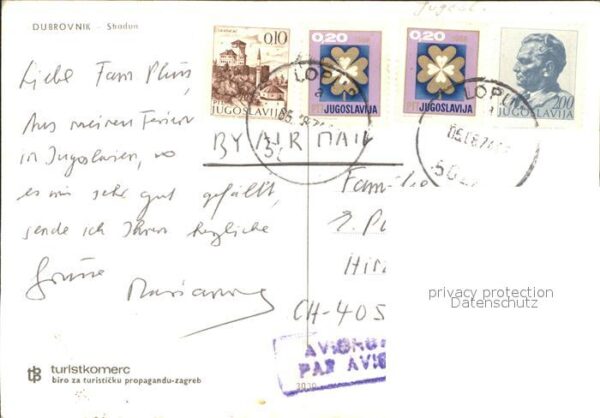 DUBROVNIK - Stradun
Jugosl.
0,10
JUGOSLAVIJA
0,20
PTT JUGOSLAVIJA
0,20
PTT JUGOSLAVIJA
2,00
JUGOSLAVIJA
LOPUD
a
LOPUD
05.08.74
BY AIR MAIL
Liebe Fam
Aus meinen Ferien
in Jugoslavien, wo
es mir sehr gut gefällt,
sende ich Ihnen herzliche
Grüsse
Familie
Hir
CH-405
AVIONOM
PAR AVION
privacy protection
Datenschutz
tb turistkomerc
biro za turističku propagandu-zagreb
3020